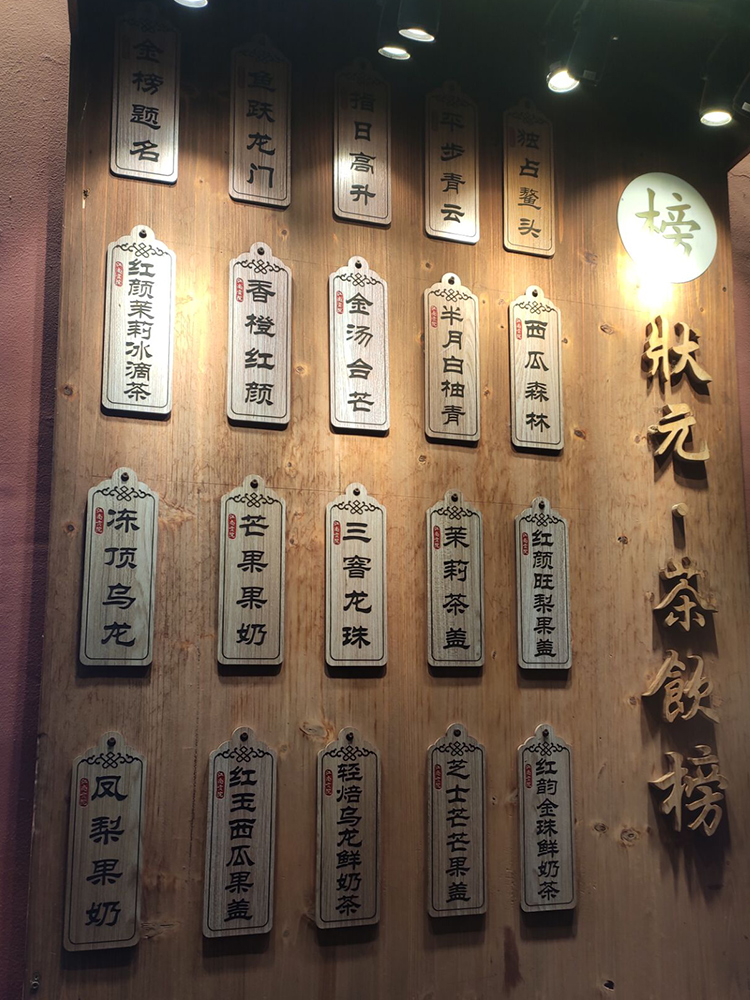 榜
狀元·茶飲榜
金榜题名
鱼跃龙门
指日高升
平步青云
独占鳌头
红颜茉莉冰滴茶
香橙红颜
金汤台芒
半月白柚青
西瓜森林
冻顶乌龙
芒果果奶
三窨龙珠
茉莉茶盖
红颜旺梨果盖
凤梨果奶
红玉西瓜果盖
轻焙乌龙鲜奶茶
芝士芒芒果盖
红韵金珠鲜奶茶